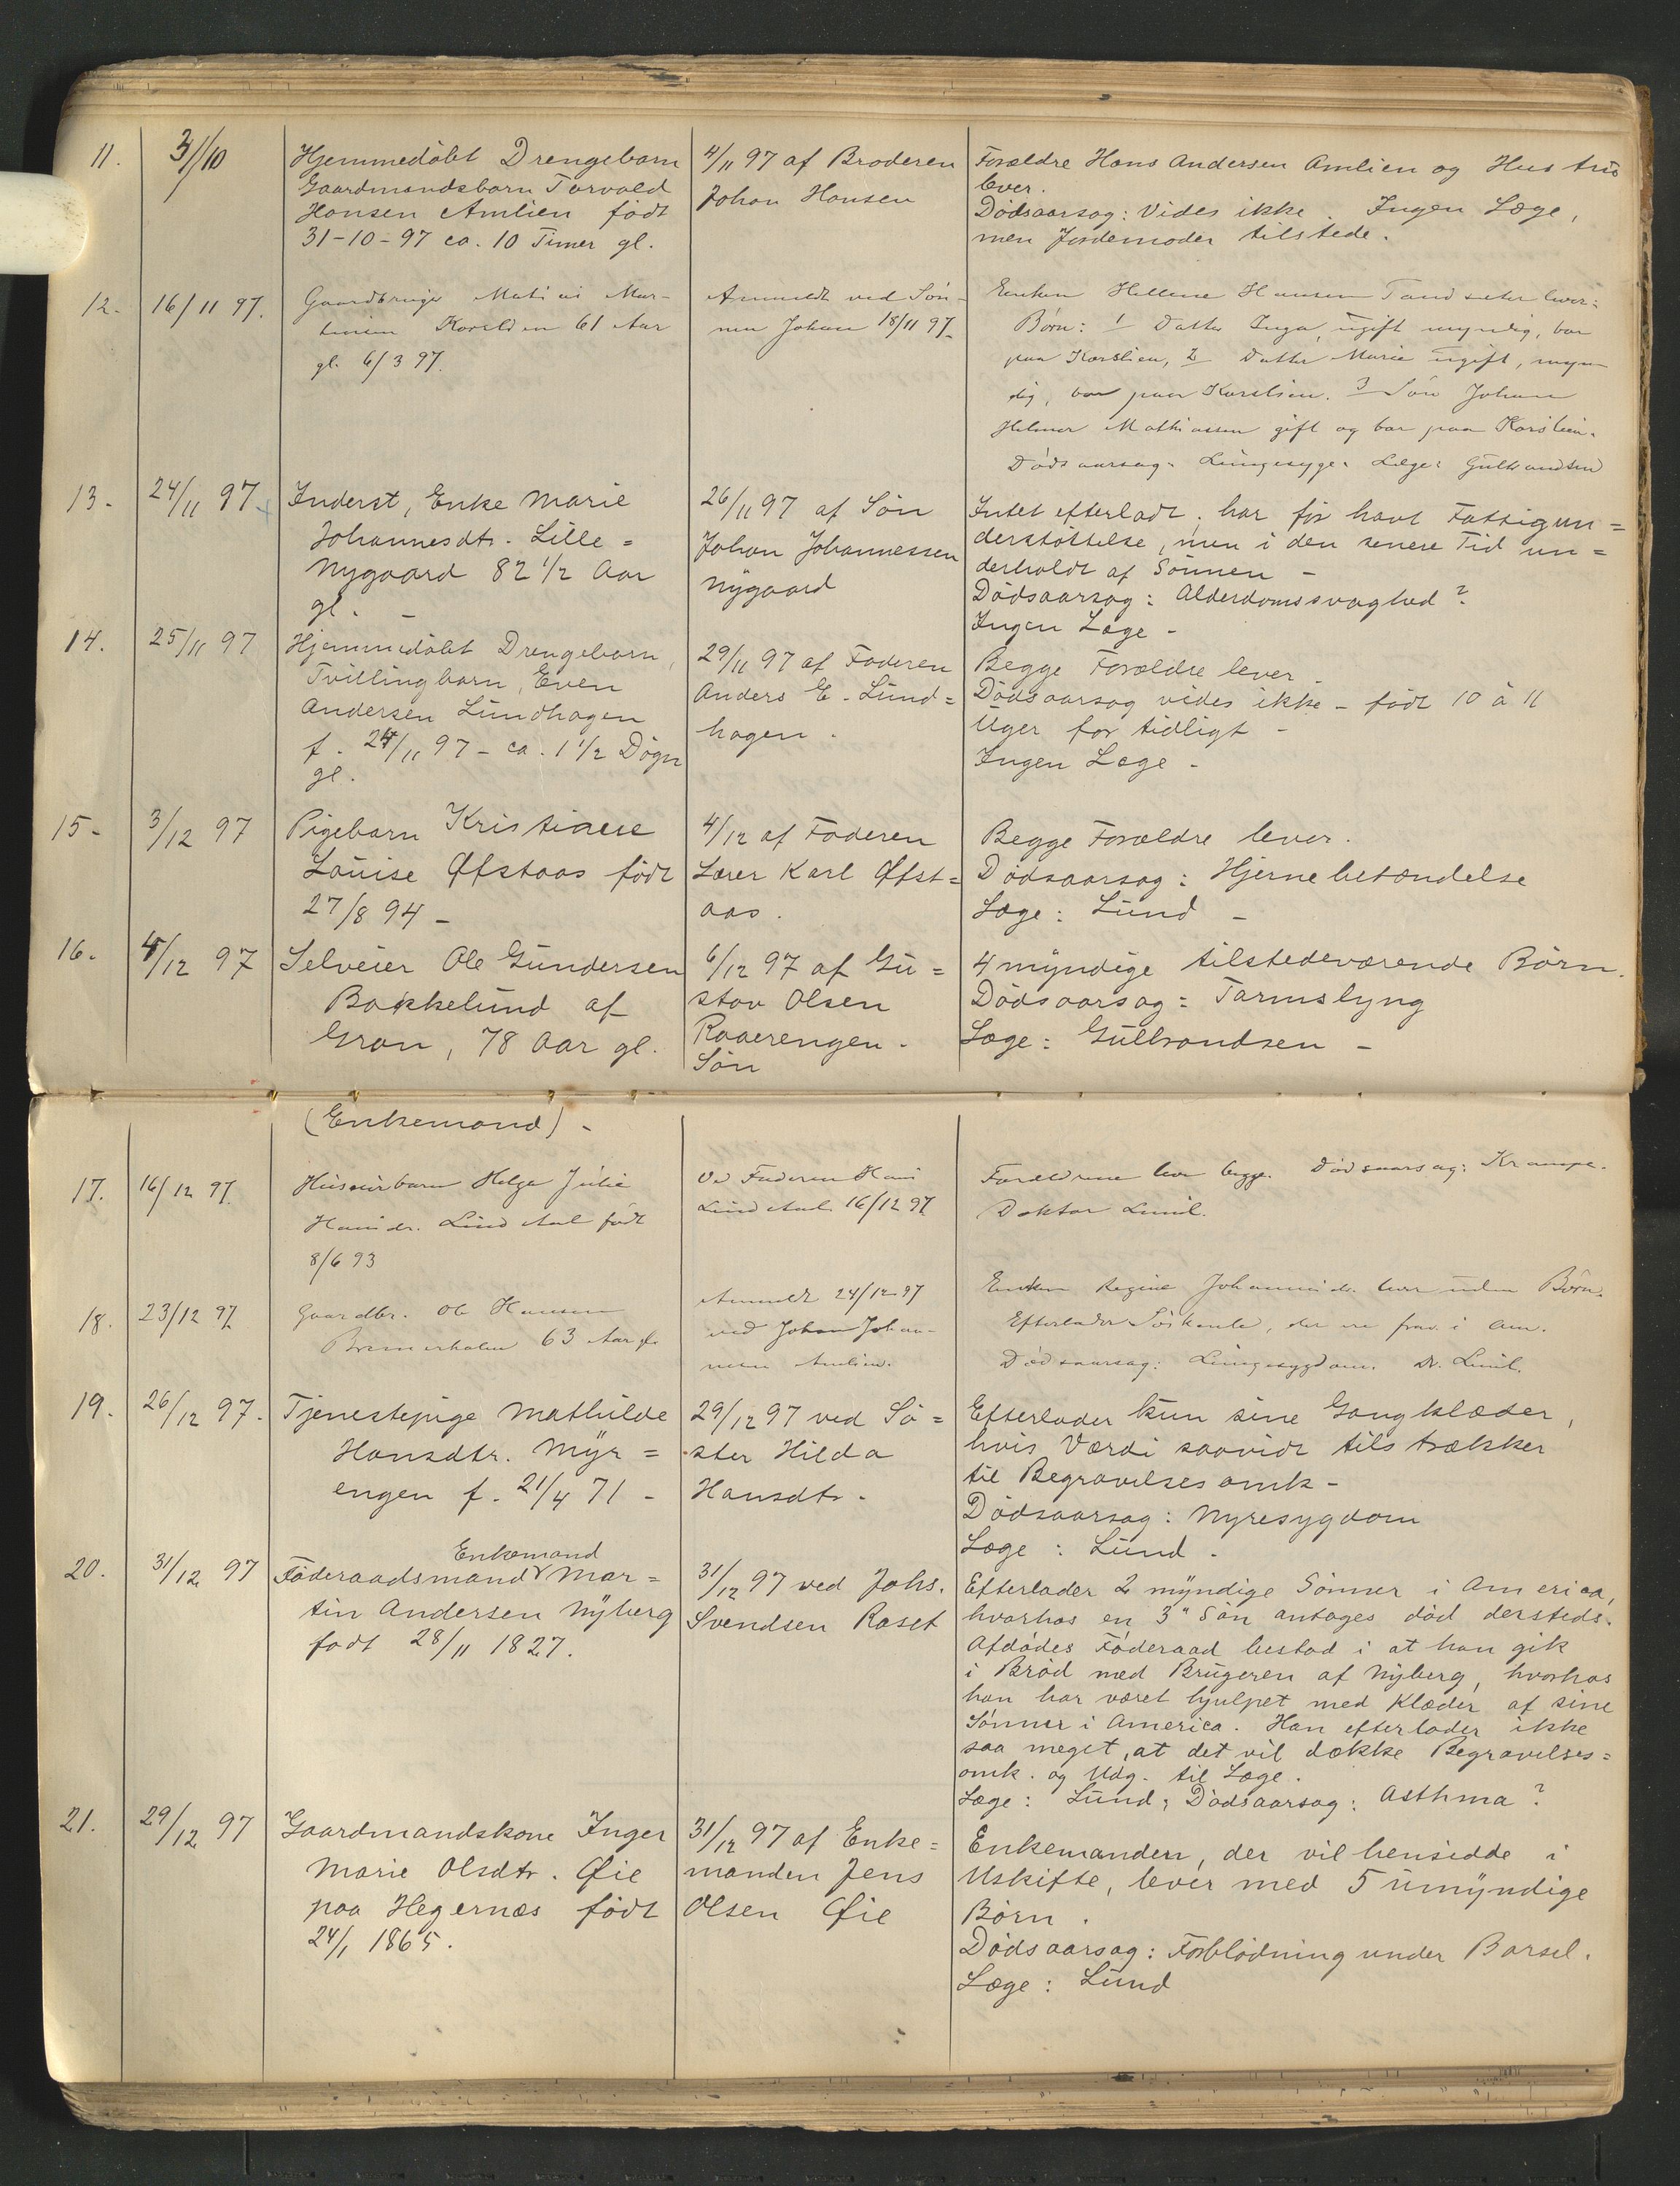 11.
31/10
Hjemmedöbt Drengebarn
Gaardmandsbarn Torvald
Hansen Amlien födt
31-10-97 ca. 10 Timer gl.
4/11 97 af Broderen
Johan Hansen
Forældre Hans Andersen Amlien og Hustru
lever.
Dödsaarsag: Vides ikke. Ingen Læge,
men Jordemoder tilstede.
12.
16/11 97.
Gaardbruger Matias Mar-
tinsen 61 Aar
gl. 6/3 97.
Anmeldt ved Søn-
nen Johan 18/11 97.
Enken Hellene Hansen lever:
Børn: 1 Datter Inga, ugift myndig, bor
paa Korslien, 2 Datter Marie ugift, myn-
dig, bor paa Korslien. 3 Søn Johan
Helmer Mathiassen gift og bor paa Korslien.
Dødsaarsag: Lungesyge. Læge: Gulbrandsen
13.
24/11 97.
Inderst, Enke Marie
Johannesdtr. Lille=
Nygaard 82 1/2 Aar
gl. -
26/11 97 af Sön
Johan Johannessen
Nygaard
Intet efterladt, har för havt Fattigun=
derstöttelse, men i den senere Tid un=
derholdt af Sönnen -
Dödsaarsag: Alderdomssvaghed?
Ingen Læge -
14.
25/11 97
Hjemmedöbt Drengebarn,
Tvillingbarn, Even
Andersen Lundhagen
f. 24/11 97 - ca. 1 1/2 Dögn
gl.
29/11 97 af Faderen
Anders E. Lund=
hagen.
Begge Forældre lever -
Dödsaarsag vides ikke - födt 10 à 11
Uger for tidligt -
Ingen Læge -
15-
3/12 97
Pigebarn Kristiane
Louise Øfstaas födt
27/8 94 -
4/12 af Faderen
Lærer Karl Øfst=
aas.
Begge Forældre lever.
Dödsaarsag: Hjernebetændelse
Læge: Lund -
16.
4/12 97
Selveier Ole Gundersen
Bakkelund af
Gran, 78 Aar gl.
(Enkemand) -
6/12 97 af Gu=
stav Olsen
Raaerengen.
Sön
4 myndige tilstedeværende Börn.
Dödsaarsag: Tarmslyng
Læge: Gulbrandsen -
17.
16/12 97.
Helga Julie
Hansdr. Lind födt
8/6 93
Ved Faderen Hans
Lind 16/12 97
Forældrene lever begge. Dødsaarsag: Krampe.
Doktor Lund.
18.
23/12 97.
Gaardbr. Ole Hansen
Bremerholm 63 Aar gl.
Anmeldt 24/12 97
ved Johan Johan-
nesen Amlien.
Enken Regine Johannesdr. lever uden Børn.
Efterlader Söskende, der er frav. i Am.
Dødsaarsag: Lungesygdom. Dr. Lund.
19.
26/12 97.
Tjenestepige Mathilde
Hansdtr. Myr=
engen f. 21/4 71 -
29/12 97 ved Sö=
ster Hilda
Hansdtr.
Efterlader kun sine Gangklæder,
hvis Værdi saavidt tilstrækker
til Begravelsesomk-
Dödsaarsag: Nyresygdom
Læge: Lund.
20.
31/12 97
Enkemand
Föderaadsmand Mar=
tin Andersen Nyberg
födt 28/11 1827.
31/12 97 ved Johs.
Svendsen Raset
Efterlader 2 myndige Sönner i America,
hvorhos en 3" Sön antages död dersteds.
Afdödes Föderaad bestod i at han gik
i Bröd med Brugeren af Nyberg, hvorhos
han har været hjulpet med Klæder af sine
Sönner i America. Han efterlader ikke
saa meget, at det vil dække Begravelses=
omk. og Udg. til Læge.
Læge: Lund; Dödsaarsag: Asthma?
21.
29/12 97
Gaardmandskone Inger
Marie Olsdtr. Øie
paa Hegernæs födt
24/1 1865.
31/12 97 af Enke=
manden Jens
Olsen Øie
Enkemanden, der vil hensidde i
Uskifte, lever med 5 umyndige
Börn.
Dödsaarsag: Forblödning under Barsel.
Læge: Lund